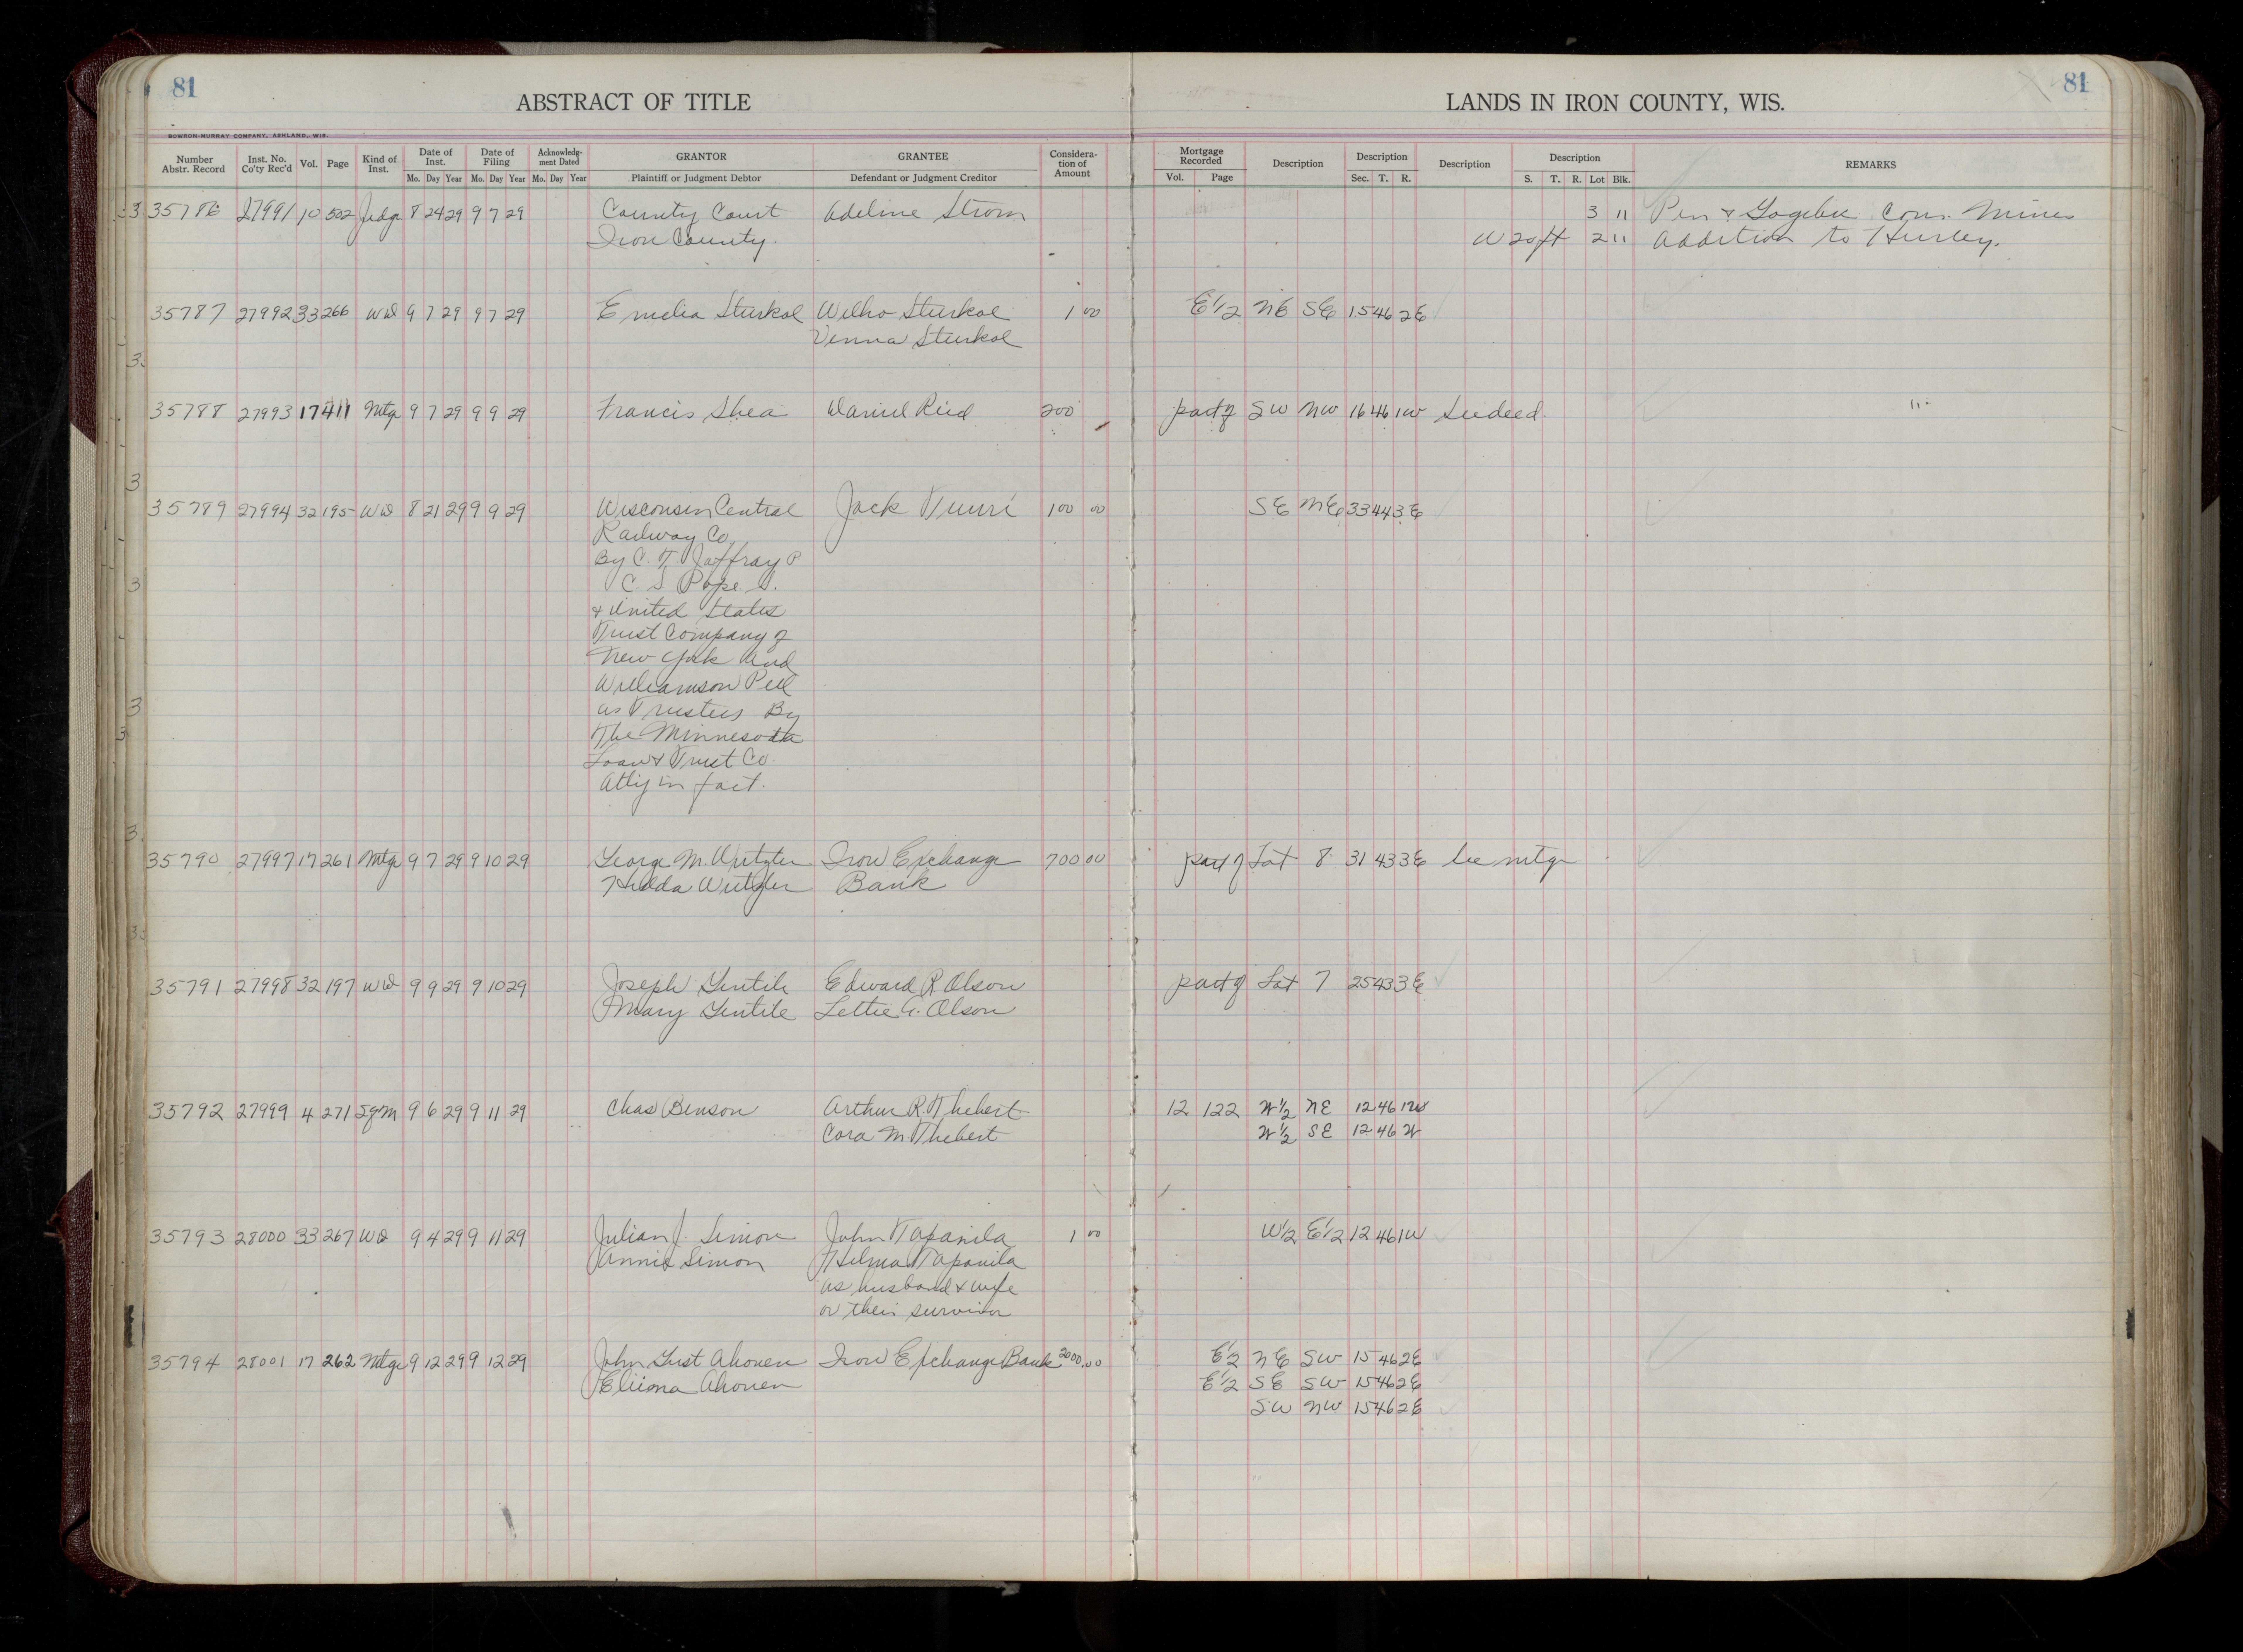 81
ABSTRACT OF TITLE
LANDS IN IRON COUNTY, WIS.
81
BOWRON-MURRAY COMPANY, ASHLAND, WIS.
Number Abstr. Record Inst. No. Co'ty Rec'd Vol. Page Kind of Inst. Date of Inst. Mo. Day Year Date of Filing Mo. Day Year Acknowledg-ment Dated Mo. Day Year GRANTOR Plaintiff or Judgment Debtor GRANTEE Defendant or Judgment Creditor Considera-tion of Amount Mortgage Recorded Vol. Page Description Description Sec. T. R. Description Description S. T. R. Lot Blk. REMARKS
35786 27991 10 502 Judg 8 24 29 9 7 29 County Court Adeline Strom 3 11 Pen & Gogebic Con. Mines
Iron County. W 20 ft 2 11 Addition to Hurley.
35787 27992 33 266 WD 9 7 29 9 7 29 Emelia Sturkol Wilho Sturkol 1 00 E 1/2 NE SE 15 46 2E
Venna Sturkol
35788 27993 17 411 Mtge 9 7 29 9 9 29 Francis Shea Daniel Reid 200 part of SW NW 16 46 1W See deed.
35789 27994 32 195 WD 8 21 29 9 9 29 Wisconsin Central Jack 100 00 SE NE 33 44 3E
Railway Co.
By C. T. Jaffray P
C. S. Pope S.
& United States
Trust Company of
New York and
Williamson Pell
as Trustees By
The Minnesota
Loan & Trust Co.
Atty in fact.
35790 27997 17 261 Mtge 9 7 29 9 10 29 George M. Iron Exchange 700 00 part of Lot 8 31 43 3E See mtge
Hilda Bank
35791 27998 32 197 WD 9 9 29 9 10 29 Joseph Gentile Edward R Olson part of Lot 7 25 43 3E
Mary Gentile Lettie A. Olson
35792 27999 4 271 9 6 29 9 11 29 Chas Benson Arthur R. Thebert 12 122 W 1/2 NE 12 46 1W
Cora M Thebert W 1/2 SE 12 46 W
35793 28000 33 267 WD 9 4 29 9 11 29 Julian J. Simon John Tapanila 1 00 W 1/2 E 1/2 12 46 1W
Annie Simon Hilma Tapanila
as husband & wife
or their survivor
35794 28001 17 262 Mtge 9 12 29 9 12 29 John Gust Ahonen Iron Exchange Bank 2000.00 E 1/2 NE SW 15 46 2E
Ahonen E 1/2 SE SW 15 46 2E
SW NW 15 46 2E